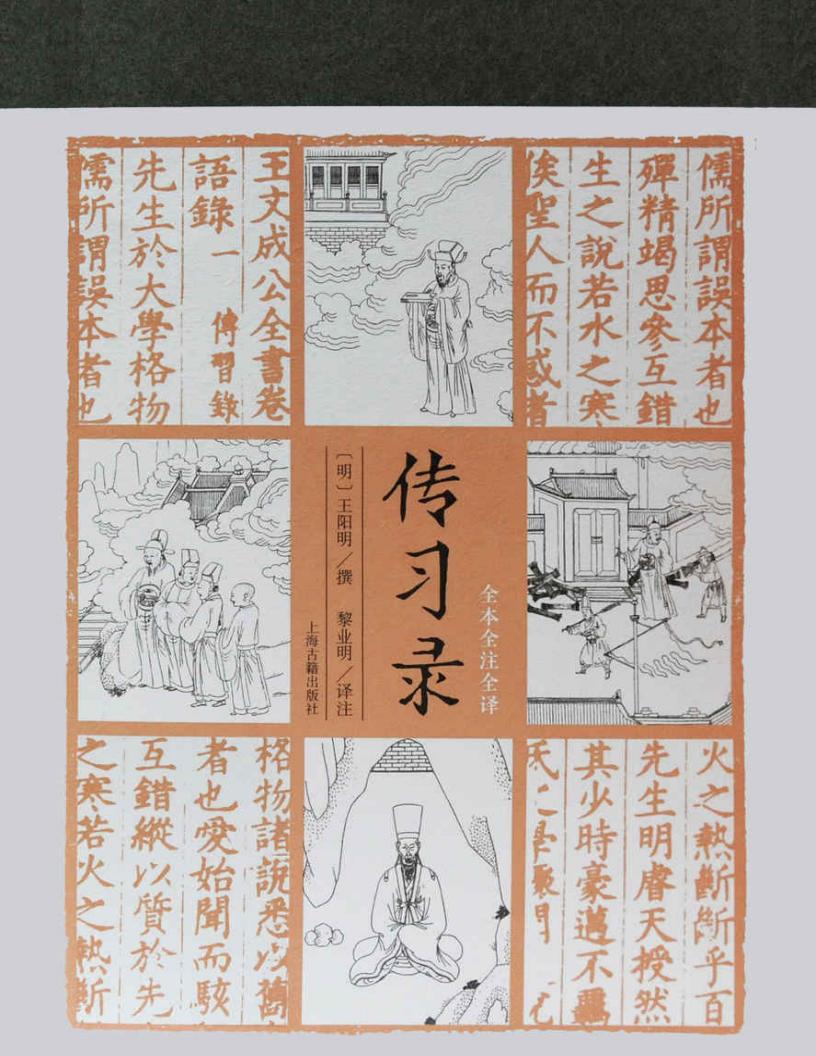 儒所謂誤本者也
殫精竭思參互錯
生之說若水之寒
俟聖人而不惑者
王文成公全書卷
語錄一 傳習錄
先生於大學格物
儒所謂誤本者也
全本全注全译
传习录
〔明〕王阳明／撰 黎业明／译注
上海古籍出版社
火之熱斷斷乎百
先生明睿天授然
其少時豪邁不羈
格物諸說悉以舊
者也愛始聞而駭
互錯縱以質於先
之寒若火之熱斷